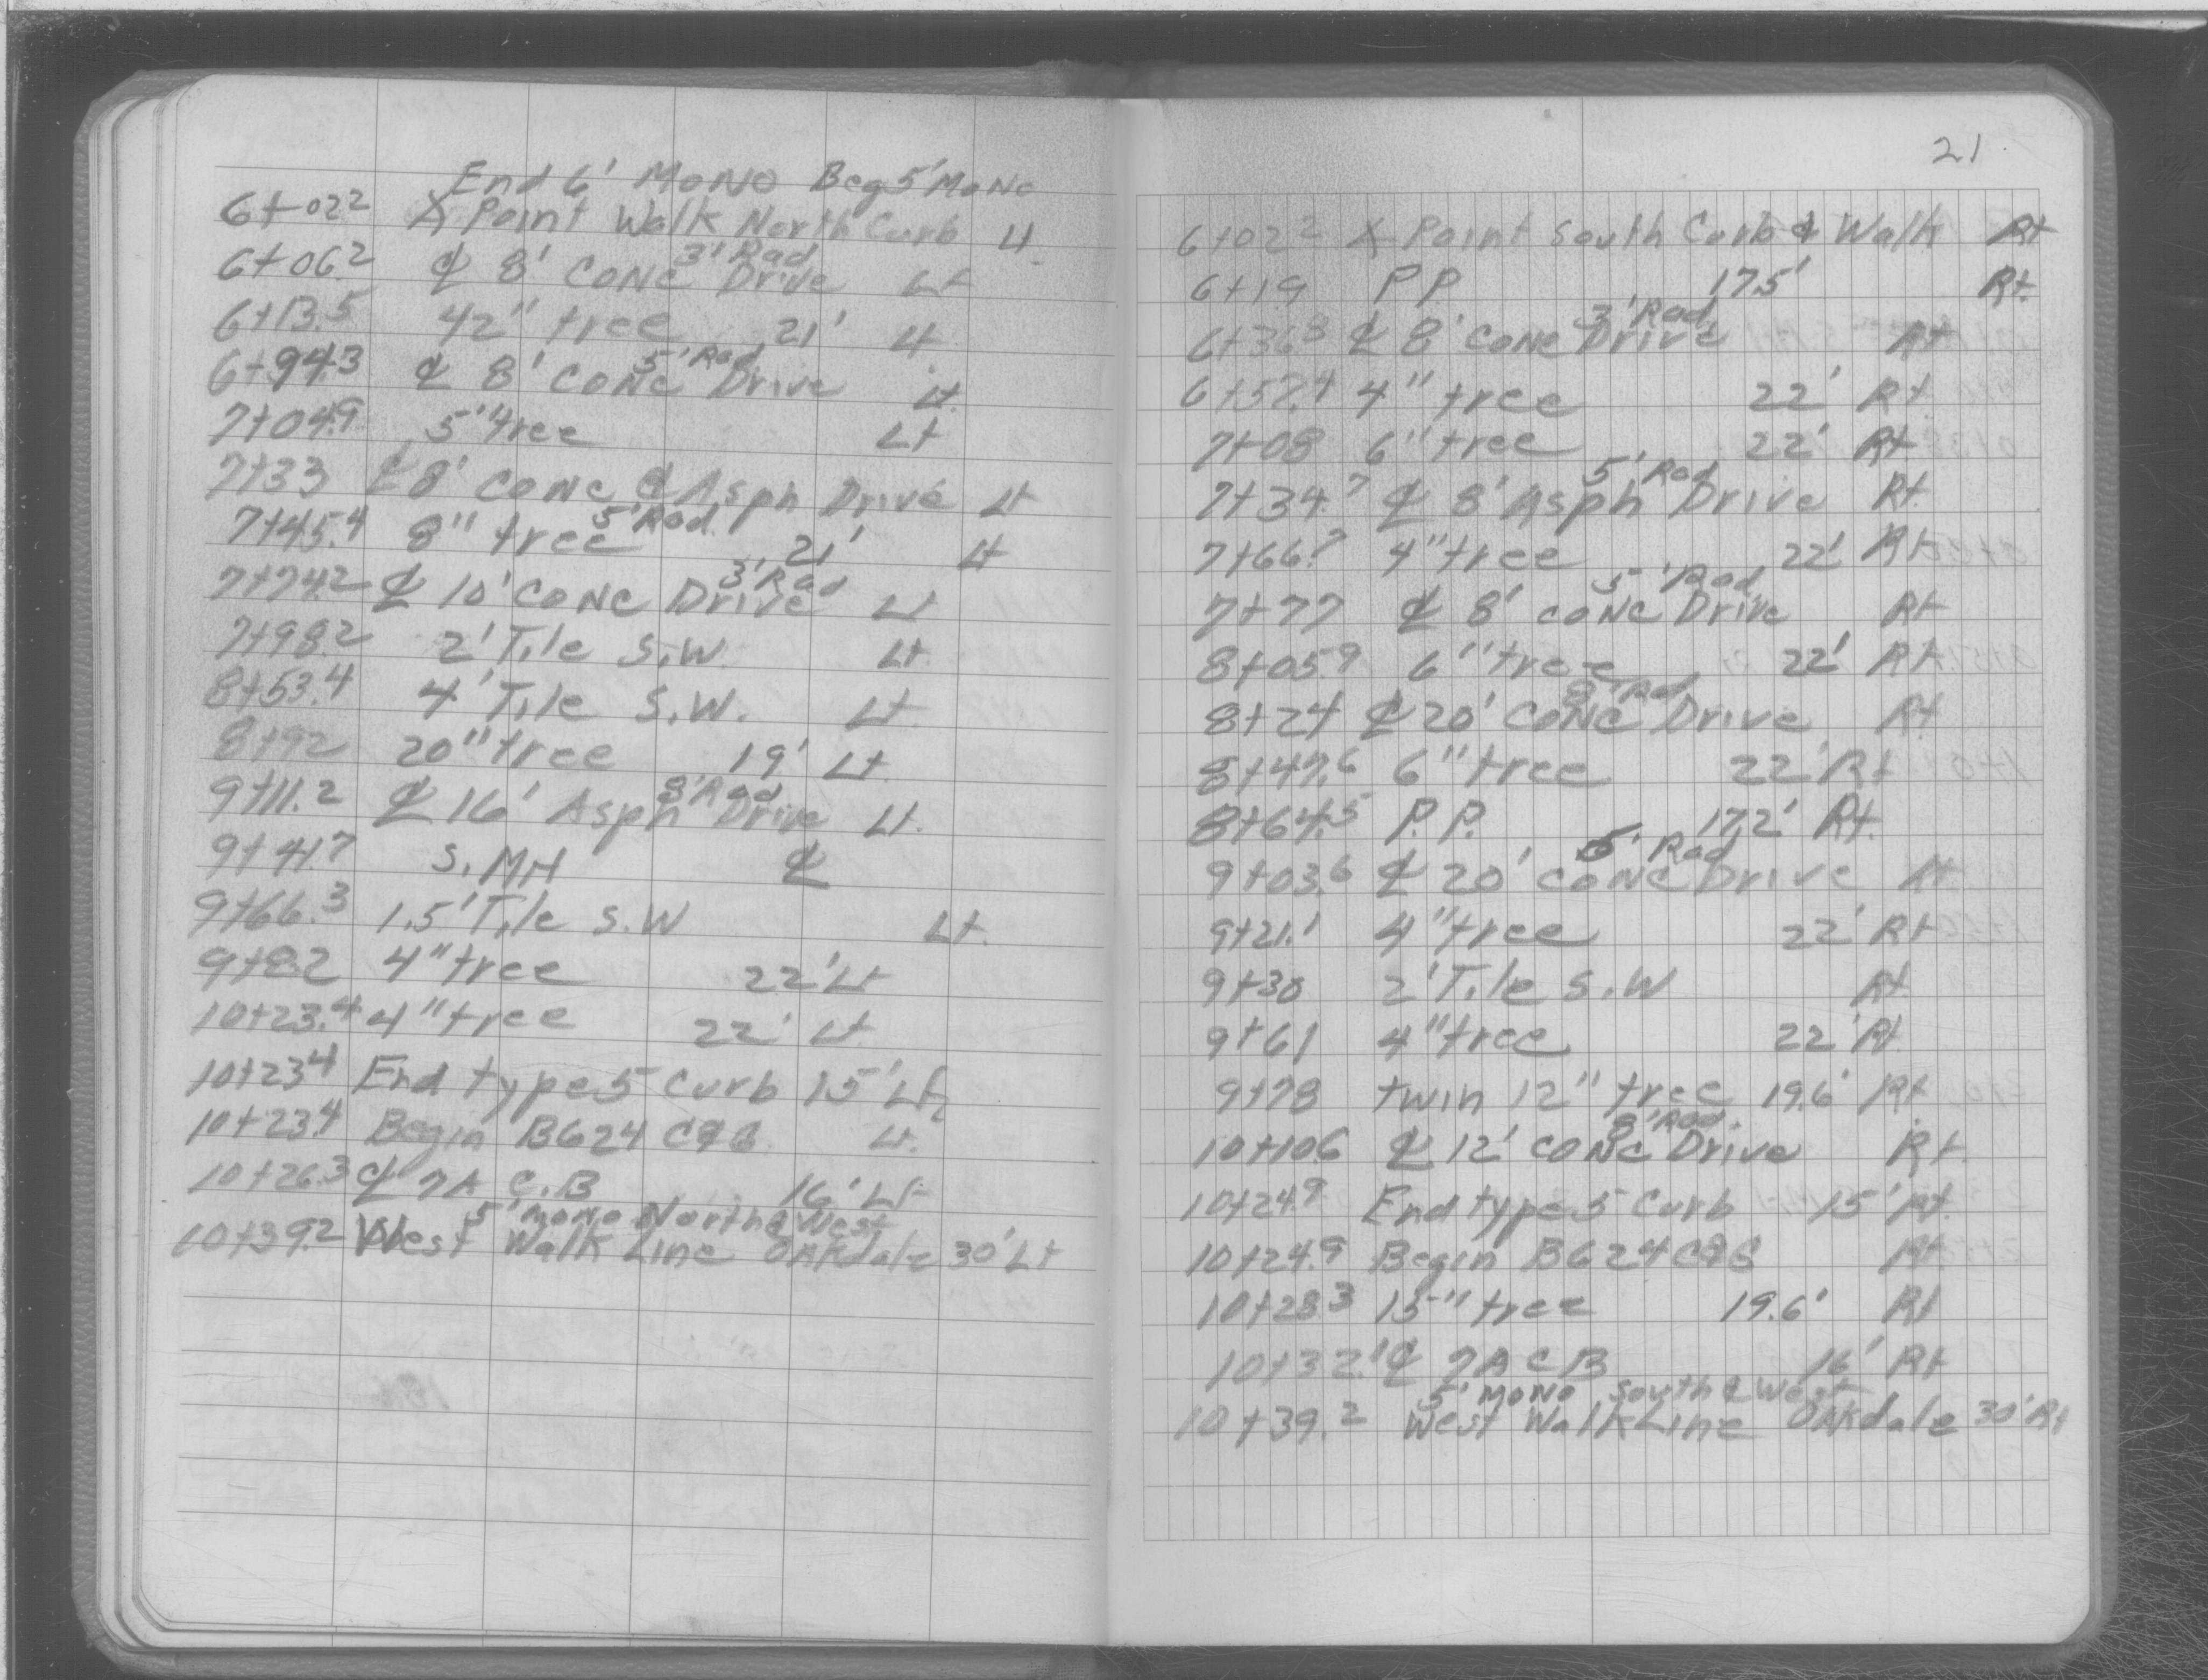 End 6' Mono Beg 5' Mono
6+02² X Point Walk North Curb Lt.
3' Rad
6+06² ℄ 8' Conc Drive Lt
6+13.5 42" tree 21' Lt.
5' Rad
6+94.3 ℄ 8' Conc Drive Lt.
7+04.9 5" tree Lt
7+33 ℄ 8' Conc & Asph Drive Lt
5' Rad
7+45.4 8" tree 21' Lt
3' Rad
7+74.2 ℄ 10' Conc Drive Lt
7+98.2 2' Tile S.W. Lt.
8+53.4 4' Tile S.W. Lt
8+92 20" tree 19' Lt.
8' Rad
9+11.2 ℄ 16' Asph Drive Lt.
9+41.7 S.MH ℄
9+66.3 1.5' Tile S.W Lt.
9+82 4" tree 22' Lt
10+23.4 4" tree 22' Lt
10+23.4 End type 5 Curb 15' Lt
10+23.4 Begin B624 C&G Lt.
10+26.3 ℄ 7A C.B 16' Lt
5' Mono North & West
10+39.2 West Walk Line Oakdale 30' Lt
21
6+02² X Point South Curb & Walk Rt
6+19 P.P 17.5' Rt.
3' Rad
6+36⁸ ℄ 8' Conc Drive Rt
6+57.4 4" tree 22' Rt
7+08 6" tree 22' Rt
5' Rad
7+34.7 ℄ 8' Asph Drive Rt.
7+66.7 4" tree 22' Rt
5' Rad
7+77 ℄ 8' Conc Drive Rt
8+05⁹ 6" tree 22' Rt
8' Rad
8+24 ℄ 20' Conc Drive Rt
8+47.6 6" tree 22' Rt
8+64.5 P.P. 17.2' Rt.
5' Rad
9+03.6 ℄ 20' Conc Drive Rt
9+21.1 4" tree 22' Rt
9+30 2' Tile S.W Rt
9+61 4" tree 22' Rt
9+78 twin 12" tree 19.6' Rt
8' Rad.
10+10.6 ℄ 12' Conc Drive Rt.
10+24.9 End type 5 Curb 15' Rt.
10+24.9 Begin B624 C&G Rt.
10+28.3 15" tree 19.6' Rt
10+32.1 ℄ 7A CB 16' Rt
5' Mono South & West
10+39.2 West Walk Line Oakdale 30' Rt